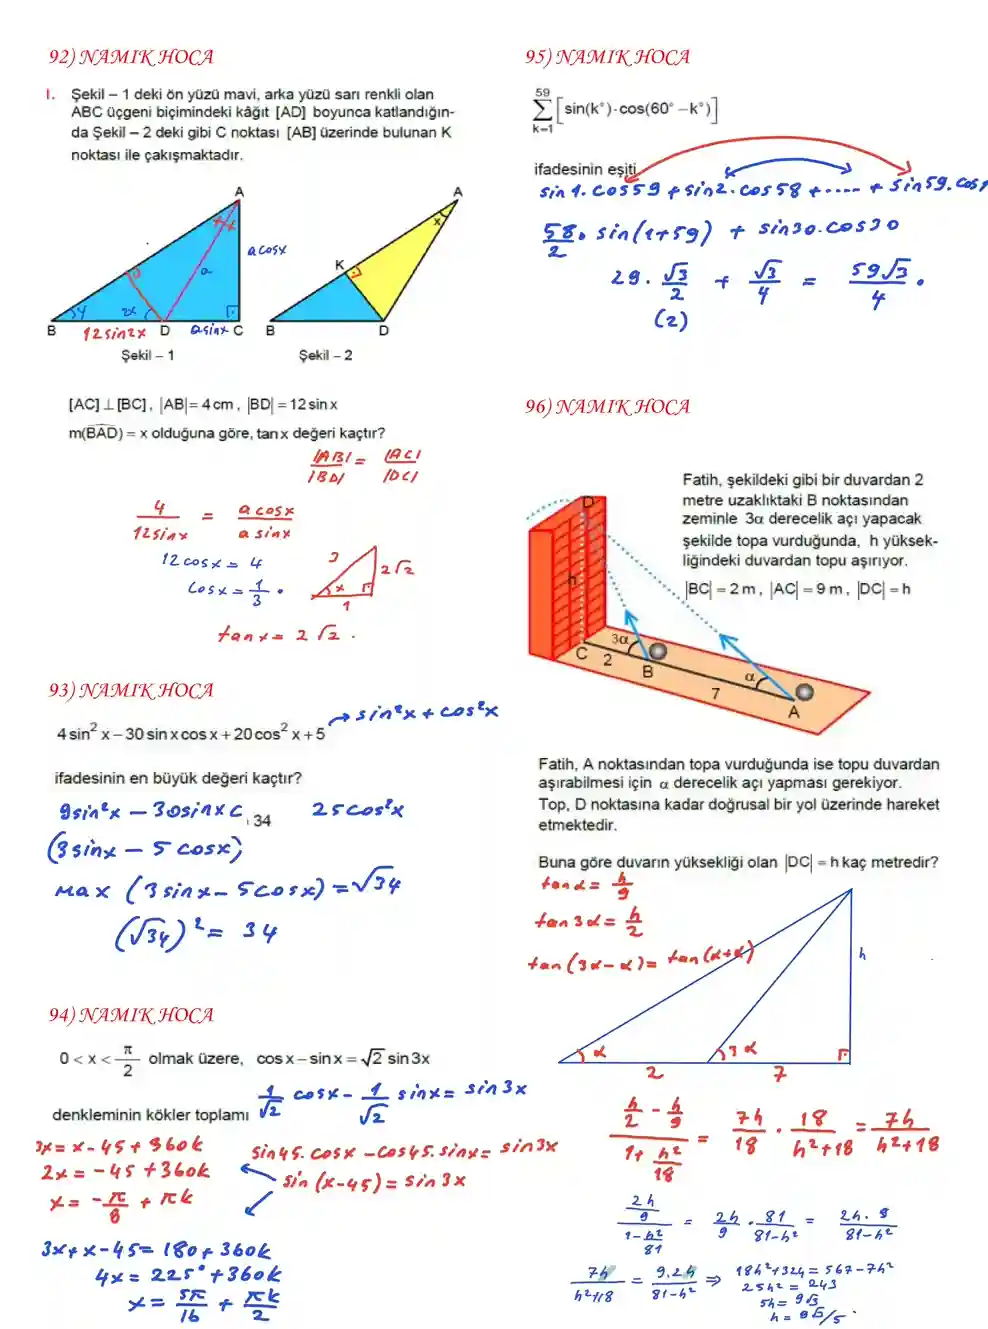 92) NAMIK HOCA
1. Şekil – 1 deki ön yüzü mavi, arka yüzü sarı renkli olan
ABC üçgeni biçimindeki kâğıt [AD] boyunca katlandığın-
da Şekil – 2 deki gibi C noktası [AB] üzerinde bulunan K
noktası ile çakışmaktadır.
A
x x
a
a cosx
y
2x
B
12sin2x
D
asinx
C
Şekil – 1
A
x
K
B
D
Şekil – 2
[AC] ⊥ [BC], |AB| = 4 cm, |BD| = 12 sin x
m(BAD) = x olduğuna göre, tan x değeri kaçtır?
|AB| / |BD| = |AC| / |DC|
4 / 12sinx = a cosx / a sinx
12 cosx = 4
cosx = 1/3 .
3
2√2
x
1
tanx = 2√2 .
93) NAMIK HOCA
4 sin² x – 30 sin x cos x + 20 cos² x + 5 → sin²x + cos²x
ifadesinin en büyük değeri kaçtır?
9sin²x – 30sinx c 34 25cos²x
(3sinx – 5 cosx)
max (3sinx – 5cosx) = √34
(√34)² = 34
94) NAMIK HOCA
0 < x < π/2 olmak üzere, cos x – sin x = √2 sin 3x
denkleminin kökler toplamı
1/√2 cosx – 1/√2 sinx = sin3x
sin45.cosx – cos45.sinx = sin3x
sin(x-45) = sin3x
3x = x-45 + 360k
2x = -45 + 360k
x = -π/8 + πk
3x + x - 45 = 180 + 360k
4x = 225° + 360k
x = 5π/16 + πk/2
95) NAMIK HOCA
59
∑ [sin(k°)·cos(60° – k°)]
k=1
ifadesinin eşiti
sin1.cos59 + sin2.cos58 + ..... + sin59.cos1
58/2 . sin(1+59) + sin30.cos30
29 . √3/2 + √3/4 = 59√3/4 .
(2)
96) NAMIK HOCA
Fatih, şekildeki gibi bir duvardan 2
metre uzaklıktaki B noktasından
zeminle 3α derecelik açı yapacak
şekilde topa vurduğunda, h yüksek-
liğindeki duvardan topu aşırıyor.
|BC| = 2 m, |AC| = 9 m, |DC| = h
D
h
C
2
3α
B
7
α
A
Fatih, A noktasından topa vurduğunda ise topu duvardan
aşırabilmesi için α derecelik açı yapması gerekiyor.
Top, D noktasına kadar doğrusal bir yol üzerinde hareket
etmektedir.
Buna göre duvarın yüksekliği olan |DC| = h kaç metredir?
tanα = h/9
tan3α = h/2
tan(3α – α) = tan(α+α)
h
α
3α
2
7
(h/2 – h/9) / (1 + h²/18) = 7h/18 . 18/(h²+18) = 7h/(h²+18)
(2h/9) / (1 – h²/81) = 2h/9 . 81/(81-h²) = 2h.9/(81-h²)
7h/(h²+18) = 9.2h/(81-h²) ⇒ 18h²+324 = 567-7h²
25h² = 243
5h = 9√3
h = 9√3/5 .